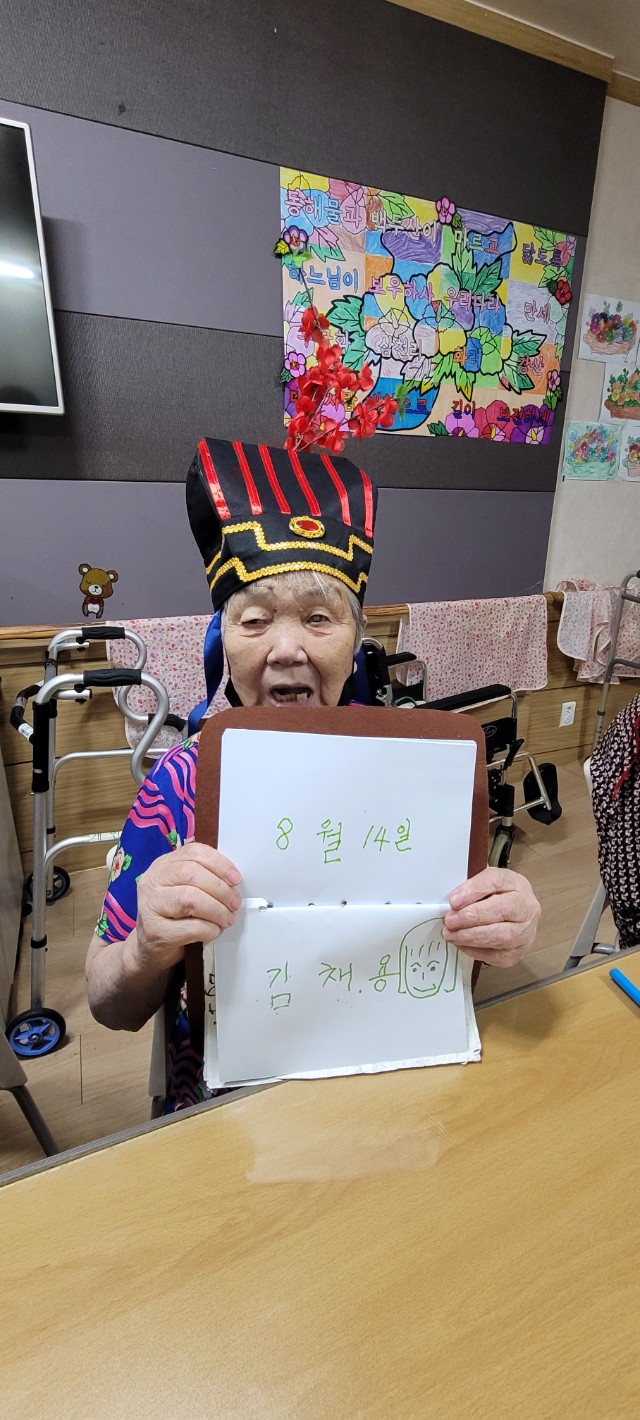 동해물과 백두산이 마르고 닳도록
하느님이 보우하사 우리나라 만세
삼천리 화려 강산
길이 보전하세
8 월 14일
김 채. 용